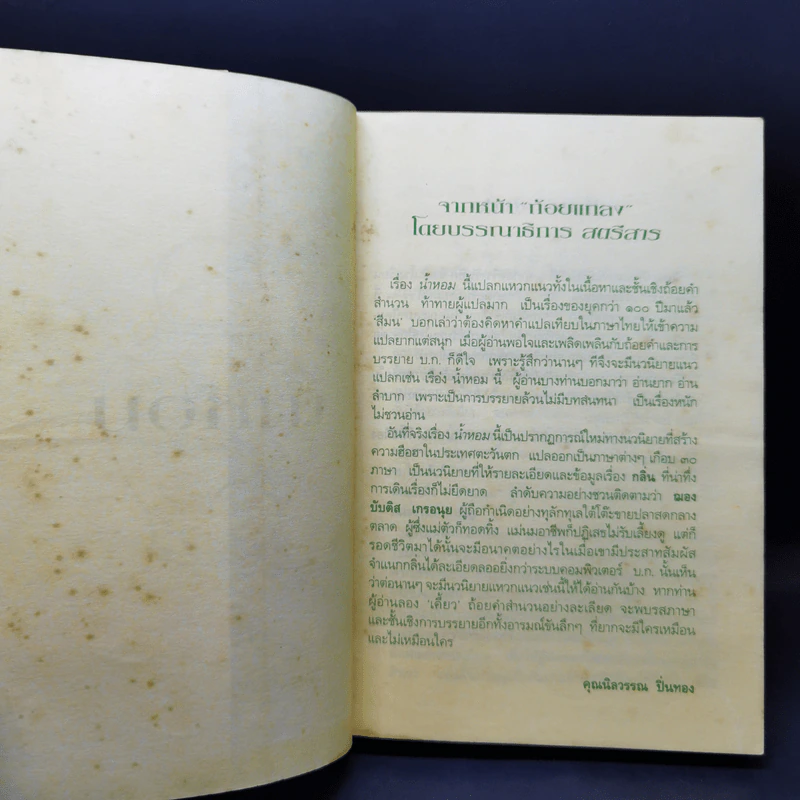 จากหน้า "ถ้อยแถลง"
โดยบรรณาธิการ สตรีสาร
เรื่อง น้ำหอม นี้แปลกแหวกแนวทั้งในเนื้อหาและชั้นเชิงถ้อยคำ
สำนวน ท้าทายผู้แปลมาก เป็นเรื่องของยุคกว่า ๑๐๐ ปีมาแล้ว
'สีมน' บอกเล่าว่าต้องคิดหาคำแปลเทียบในภาษาไทยให้เข้าความ
แปลยากแต่สนุก เมื่อผู้อ่านพอใจและเพลิดเพลินกับถ้อยคำและการ
บรรยาย บ.ก. ก็ดีใจ เพราะรู้สึกว่านานๆ ทีจึงจะมีนวนิยายแนว
แปลกเช่น เรื่อง น้ำหอม นี้ ผู้อ่านบางท่านบอกมาว่า อ่านยาก อ่าน
ลำบาก เพราะเป็นการบรรยายล้วนไม่มีบทสนทนา เป็นเรื่องหนัก
ไม่ชวนอ่าน
อันที่จริงเรื่อง น้ำหอม นี้เป็นปรากฏการณ์ใหม่ทางนวนิยายที่สร้าง
ความฮือฮาในประเทศตะวันตก แปลออกเป็นภาษาต่างๆ เกือบ ๓๐
ภาษา เป็นนวนิยายที่ให้รายละเอียดและข้อมูลเรื่อง กลิ่น ที่น่าทึ่ง
การเดินเรื่องก็ไม่ยืดยาด ลำดับความอย่างชวนติดตามว่า ฌอง
บับติส เกรอนุย ผู้ถือกำเนิดอย่างทุลักทุเลใต้โต๊ะขายปลาสดกลาง
ตลาด ผู้ซึ่งแม่ตัวก็ทอดทิ้ง แม่นมอาชีพก็ปฏิเสธไม่รับเลี้ยงดู แต่ก็
รอดชีวิตมาได้นั้นจะมีอนาคตอย่างไรในเมื่อเขามีประสาทสัมผัส
จำแนกกลิ่นได้ละเอียดลออยิ่งกว่าระบบคอมพิวเตอร์ บ.ก. นั้นเห็น
ว่าต่อนานๆ จะมีนวนิยายแหวกแนวเช่นนี้ให้ได้อ่านกันบ้าง หากท่าน
ผู้อ่านลอง 'เคี้ยว' ถ้อยคำสำนวนอย่างละเลียด จะพบรสภาษา
และชั้นเชิงการบรรยายอีกทั้งอารมณ์ขันลึกๆ ที่ยากจะมีใครเหมือน
และไม่เหมือนใคร
คุณนิลวรรณ ปิ่นทอง